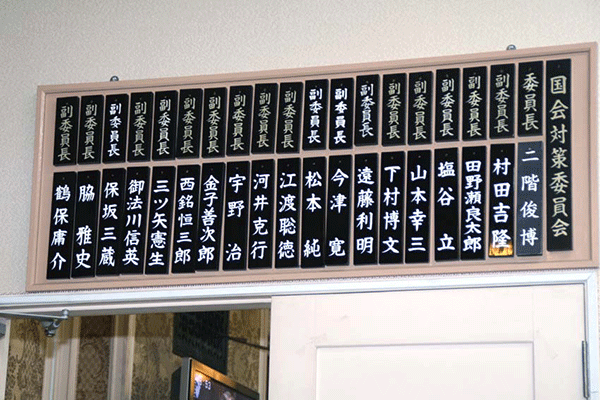 国会対策委員会
委員長 二階俊博
副委員長 村田吉隆
副委員長 田野瀬良太郎
副委員長 塩谷立
副委員長 山本幸三
副委員長 下村博文
副委員長 遠藤利明
副委員長 今津寛
副委員長 松本純
副委員長 江渡聡徳
副委員長 河井克行
副委員長 宇野治
副委員長 金子善次郎
副委員長 西銘恒三郎
副委員長 三ツ矢憲生
副委員長 御法川信英
副委員長 保坂三蔵
副委員長 脇雅史
副委員長 鶴保庸介